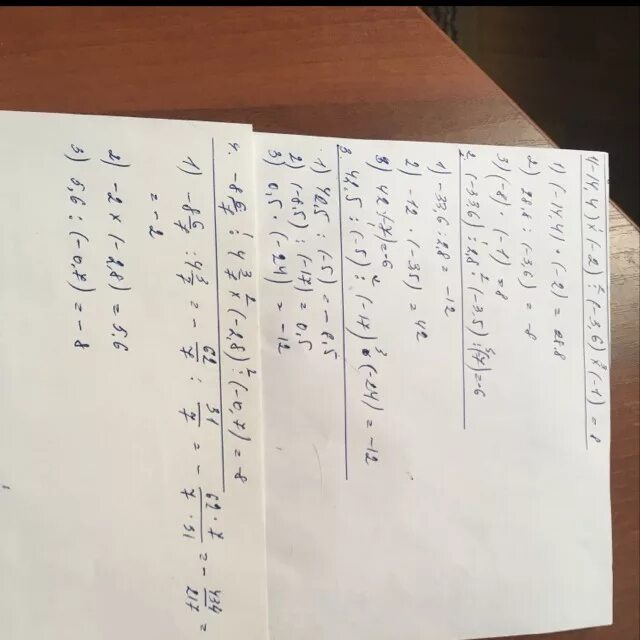 (-14,4) × (-2) : (-3,6) × (-1) = 8
1) (-14,4) · (-2) = 28.8
2) 28.8 : (-3,6) = -8
3) (-8) · (-1) = 8
2. (-33,6) : 2,8 · (-3,5) : (-7) = -6
1) -33,6 : 2,8 = -12
2) -12 · (-3,5) = 42
3) 42 : (-7) = -6
3. 42,5 : (-5) : (-17) · (-24) = -12
1) 42,5 : (-5) = -8,5
2) (-8,5) : (-17) = 0,5
3) 0,5 · (-24) = -12
4. -8 6/7 : 4 3/7 × (-2,8) : (-0,7) = -8
1) -8 6/7 : 4 3/7 = - 62/7 : 31/7 = - 62 · 7 / 7 · 31 = - 434/217 =
= -2
2) -2 × (-2,8) = 5,6
3) 5,6 : (-0,7) = -8